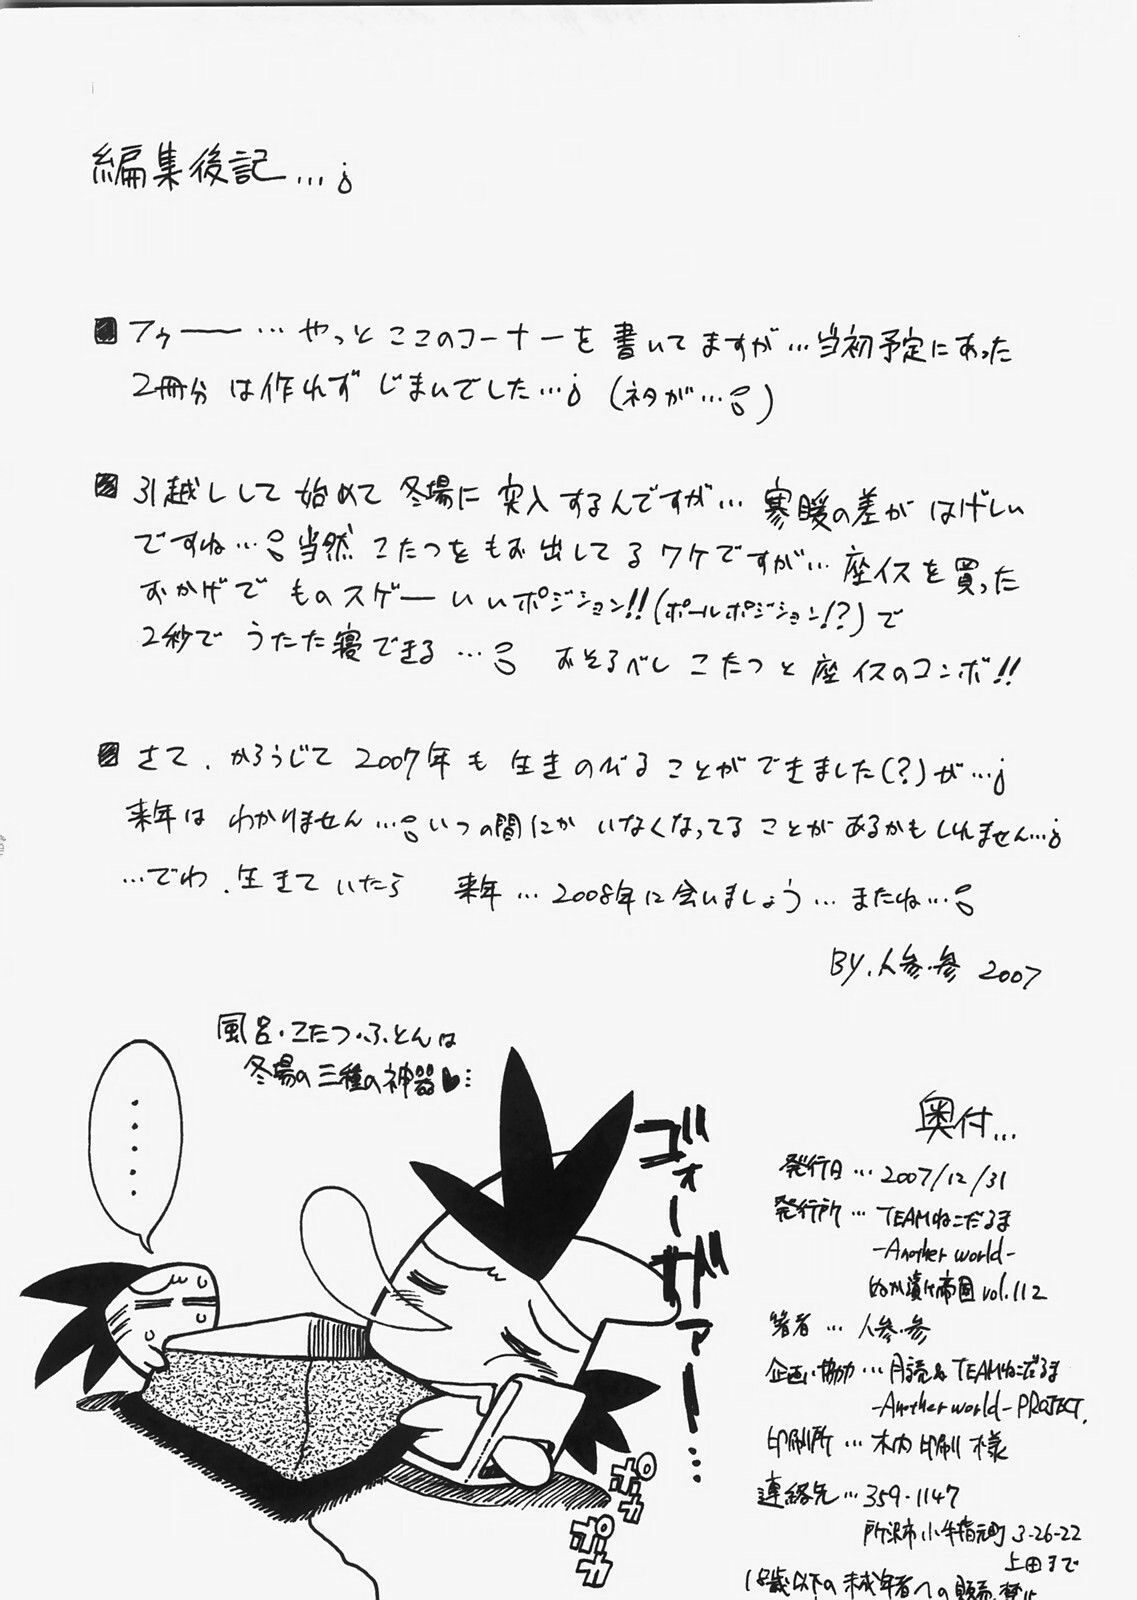 編集後記…
■フゥ──…やっとここのコーナーを書いてますが…当初予定にあった
2冊分は作れずじまいでした…(ネタが…)
■引越しして始めて冬場に突入するんですが…寒暖の差がはげしい
ですね…当然こたつをもお出してるワケですが…座イスを買った
おかげでものスゲーいいポジション!!(ポールポジション!?)で
2秒でうたた寝できる…おそるべしこたつと座イスのコンボ!!
■さて、かろうじて2007年も生きのびることができました(?)が…
来年はわかりません…いつの間にかいなくなってることがあるかもしれません…
…でわ、生きていたら 来年…2008年に会いましょう…またね…
BY.人参.参 2007
風呂・こたつ・ふとんは
冬場の三種の神器♥…
・・・・・
ゴォーガァー…
ポカ
ポカ
奥付…
発行日…2007/12/31
発行所…TEAMねこだるま
-Another world-
ぬか漬け帝国 vol.112
著者…人参.参
企画・協力…月読&TEAMねこだるま
-Another world-PROJECT.
印刷所…木内印刷様
連絡先…359-1147
所沢市小手指元町3-26-22
上田まで
18歳以下の未成年者への販売禁止